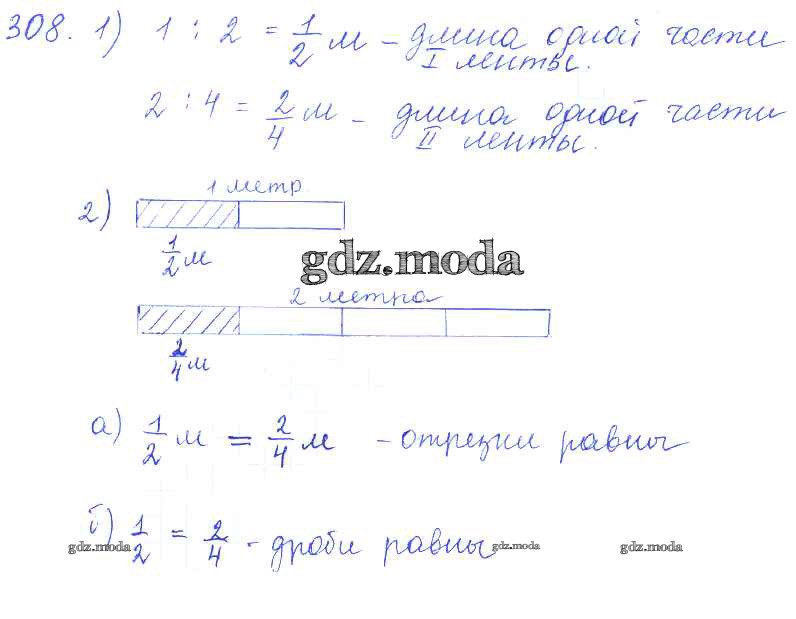 308. 1) 1 : 2 = 1/2 м – длина одной части
I ленты.
2 : 4 = 2/4 м – длина одной части
II ленты.
1 метр
2)
1/2 м
gdz.moda
2 метра
2/4 м
а) 1/2 м = 2/4 м – отрезки равны
б) 1/2 = 2/4 – дроби равны
gdz.moda gdz.moda gdz.moda